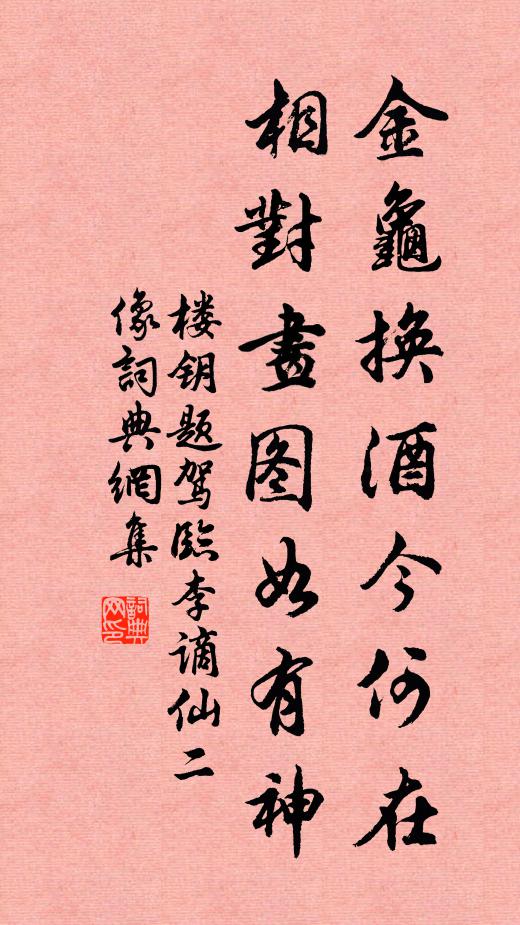 金龜換酒今何在
相對畫图如有神
楼钥题驾臨李谪仙二
像詞典網集
詞典
网印